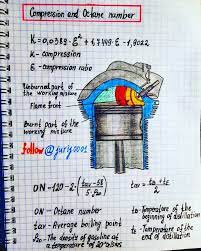 Compression and Octane number
K = 0,0389·ε² + 1,7449·ε - 1,8022
K - compression
ε - compression ratio
Unburned part of
the working mixture
Flame front
Burnt part of the
working mixture
follow @
ON = 120 - 2·(tav - 58 / 5·ρ20)
tav = to + te / 2
ON - Octane number
tav - Average boiling point
ρ20 - The density of gasoline at
a temperature of 20
to - Temperature of the
beginning of distillation
te - Temperature of the
end of distillation